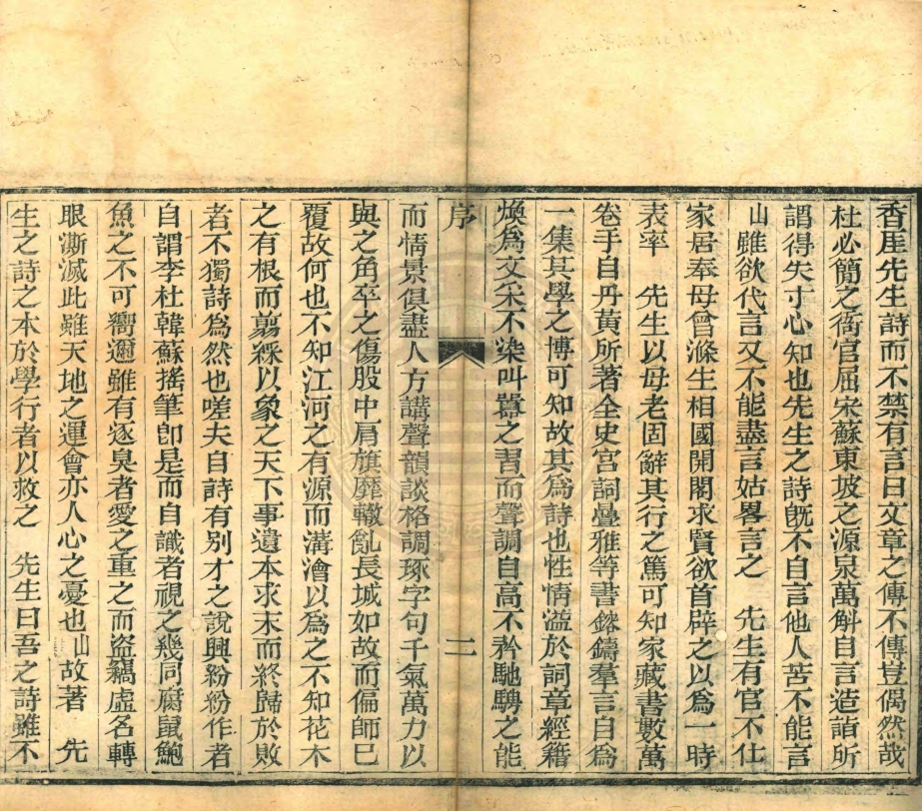 香厓先生詩而不禁有言曰文章之傳不傳豈偶然哉
杜必簡之衙官屈宋蘇東坡之源泉萬斛自言造詣所
謂得失寸心知也先生之詩旣不自言他人苦不能言
山雖欲代言又不能盡言姑畧言之 先生有官不仕
家居奉母曾滌生相國開閣求賢欲首辟之以爲一時
表率 先生以母老固辭其行之篤可知家藏書數萬
卷手自丹黃所著全史宮詞疊雅等書鎔鑄羣言自爲
一集其學之博可知故其爲詩也性情溢於詞章經籍
煥爲文采不染叫囂之習而聲調自高不矜馳騁之能
序 二
而情景俱盡人方講聲韻談格調琢字句千氣萬力以
與之角卒之傷股中肩旗靡轍亂長城如故而偏師已
覆故何也不知江河之有源而溝澮以爲之不知花木
之有根而剪綵以象之天下事遺本求末而終歸於敗
者不獨詩爲然也嗟夫自詩有別才之說興紛紛作者
自謂李杜韓蘇搖筆卽是而自識者視之幾同腐鼠鮑
魚之不可嚮邇雖有逐臭者愛之重之而盜竊虛名轉
眼澌滅此雖天地之運會亦人心之憂也山故著 先
生之詩之本於學行者以救之 先生曰吾之詩雖不